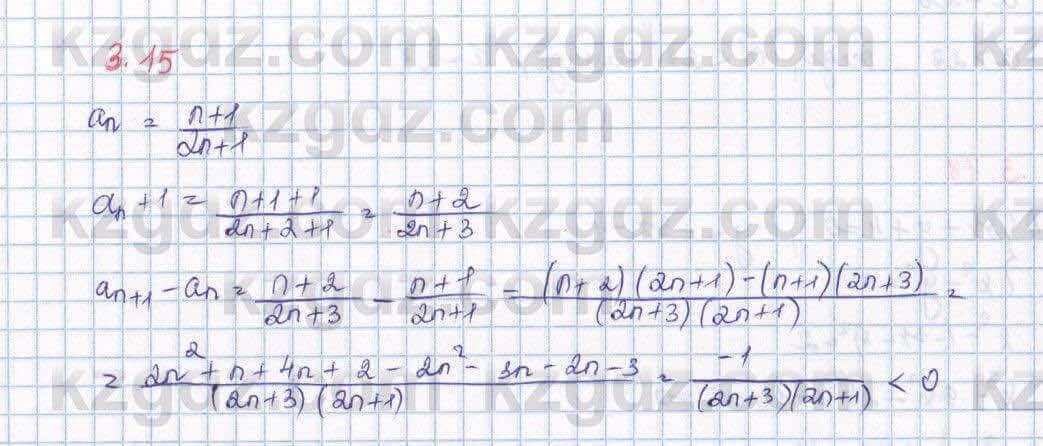 kzgdz.com kzgdz.com kz
3.15
aₙ = (n+1)/(2n+1)
kzgdz.com
aₙ+1 = (n+1+1)/(2n+2+1) = (n+2)/(2n+3)
kzgdz.com kzgdz.com kz
aₙ₊₁ - aₙ = (n+2)/(2n+3) - (n+1)/(2n+1) = ((n+2)(2n+1)-(n+1)(2n+3))/((2n+3)(2n+1)) =
kzgdz.com kzgdz.com
= (2n²+n+4n+2-2n²-3n-2n-3)/((2n+3)(2n+1)) = -1/((2n+3)(2n+1)) < 0
kzgdz.com kzgdz.com kz